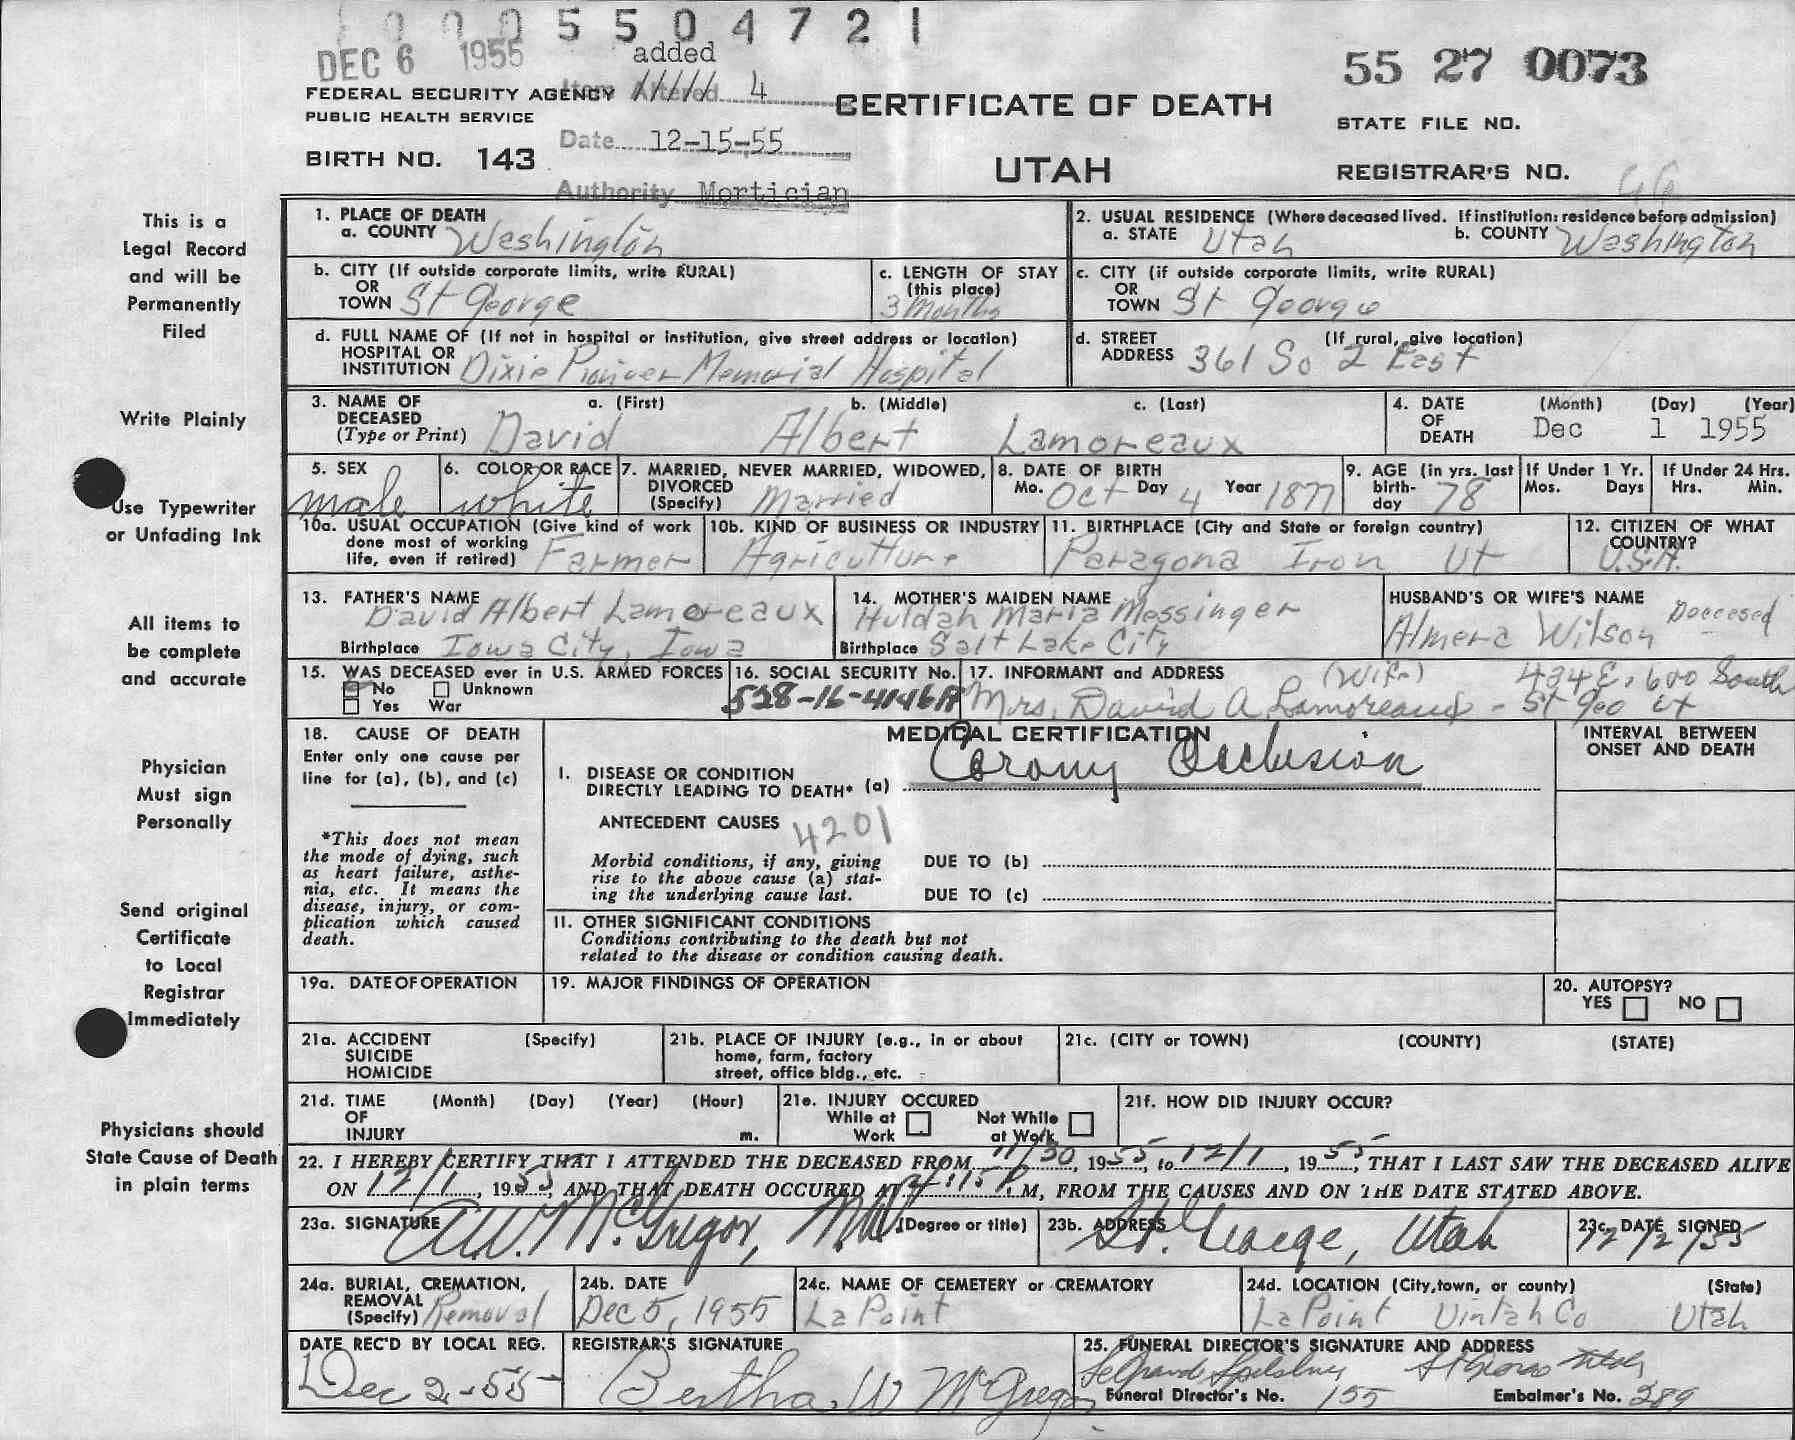 0005504721
DEC 6 1955
added
Item Altered 4
55 27 0073
FEDERAL SECURITY AGENCY
PUBLIC HEALTH SERVICE
CERTIFICATE OF DEATH
STATE FILE NO.
Date 12-15-55
BIRTH NO. 143
UTAH
REGISTRAR'S NO. 66
Authority Mortician
This is a
Legal Record
and will be
Permanently
Filed
Write Plainly
Use Typewriter
or Unfading Ink
All items to
be complete
and accurate
Physician
Must sign
Personally
Send original
Certificate
to Local
Registrar
Immediately
Physicians should
State Cause of Death
in plain terms
1. PLACE OF DEATH
a. COUNTY Washington
2. USUAL RESIDENCE (Where deceased lived. If institution: residence before admission)
a. STATE Utah b. COUNTY Washington
b. CITY (If outside corporate limits, write RURAL)
OR
TOWN St George
c. LENGTH OF STAY
(this place)
3 Months
c. CITY (if outside corporate limits, write RURAL)
OR
TOWN St George
d. FULL NAME OF (If not in hospital or institution, give street address or location)
HOSPITAL OR
INSTITUTION Dixie Pioneer Memorial Hospital
d. STREET (If rural, give location)
ADDRESS 361 So 2 East
3. NAME OF a. (First) b. (Middle) c. (Last)
DECEASED
(Type or Print) David Albert Lamoreaux
4. DATE (Month) (Day) (Year)
OF
DEATH Dec 1 1955
5. SEX
male
6. COLOR OR RACE
white
7. MARRIED, NEVER MARRIED, WIDOWED,
DIVORCED
(Specify) Married
8. DATE OF BIRTH
Mo. Oct Day 4 Year 1877
9. AGE (in yrs. last
birth-
day 78
If Under 1 Yr.
Mos. Days
If Under 24 Hrs.
Hrs. Min.
10a. USUAL OCCUPATION (Give kind of work
done most of working
life, even if retired) Farmer
10b. KIND OF BUSINESS OR INDUSTRY
Agriculture
11. BIRTHPLACE (City and State or foreign country)
Paragona Iron Ut
12. CITIZEN OF WHAT
COUNTRY?
U.S.A.
13. FATHER'S NAME
David Albert Lamoreaux
Birthplace Iowa City, Iowa
14. MOTHER'S MAIDEN NAME
Huldah Maria Messinger
Birthplace Salt Lake City
HUSBAND'S OR WIFE'S NAME
Almera Wilson Deceesed
15. WAS DECEASED ever in U.S. ARMED FORCES
No Unknown
Yes War
16. SOCIAL SECURITY No.
528-16-4146A
17. INFORMANT and ADDRESS (Wife) 434 E. 600 South
Mrs. David A. Lamoreaux - St Geo Ut
18. CAUSE OF DEATH
Enter only one cause per
line for (a), (b), and (c)
*This does not mean
the mode of dying, such
as heart failure, asthe-
nia, etc. It means the
disease, injury, or com-
plication which caused
death.
MEDICAL CERTIFICATION
I. DISEASE OR CONDITION
DIRECTLY LEADING TO DEATH* (a) Corony Occlusion
ANTECEDENT CAUSES 4201
Morbid conditions, if any, giving
rise to the above cause (a) stat-
ing the underlying cause last.
DUE TO (b)
DUE TO (c)
II. OTHER SIGNIFICANT CONDITIONS
Conditions contributing to the death but not
related to the disease or condition causing death.
INTERVAL BETWEEN
ONSET AND DEATH
19a. DATE OF OPERATION
19. MAJOR FINDINGS OF OPERATION
20. AUTOPSY?
YES NO
21a. ACCIDENT (Specify)
SUICIDE
HOMICIDE
21b. PLACE OF INJURY (e.g., in or about
home, farm, factory
street, office bldg., etc.
21c. (CITY or TOWN) (COUNTY) (STATE)
21d. TIME (Month) (Day) (Year) (Hour)
OF
INJURY m.
21e. INJURY OCCURED
While at Not While
Work at Work
21f. HOW DID INJURY OCCUR?
22. I HEREBY CERTIFY THAT I ATTENDED THE DECEASED FROM 11/30, 1955, to 12/1, 1955, THAT I LAST SAW THE DECEASED ALIVE
ON 12/1, 1955, AND THAT DEATH OCCURED AT 4:15P.M, FROM THE CAUSES AND ON THE DATE STATED ABOVE.
23a. SIGNATURE (Degree or title)
A.W. McGregor, M.D.
23b. ADDRESS
St. George, Utah
23c. DATE SIGNED
12/2/55
24a. BURIAL, CREMATION,
REMOVAL
(Specify) Removal
24b. DATE
Dec 5, 1955
24c. NAME OF CEMETERY or CREMATORY
La Point
24d. LOCATION (City, town, or county) (State)
La Point Uintah Co Utah
DATE REC'D BY LOCAL REG.
Dec 2-55
REGISTRAR'S SIGNATURE
Bertha W McGregor
25. FUNERAL DIRECTOR'S SIGNATURE AND ADDRESS
LeGrande Spilsbury St George Utah
Funeral Director's No. 155 Embalmer's No. 289